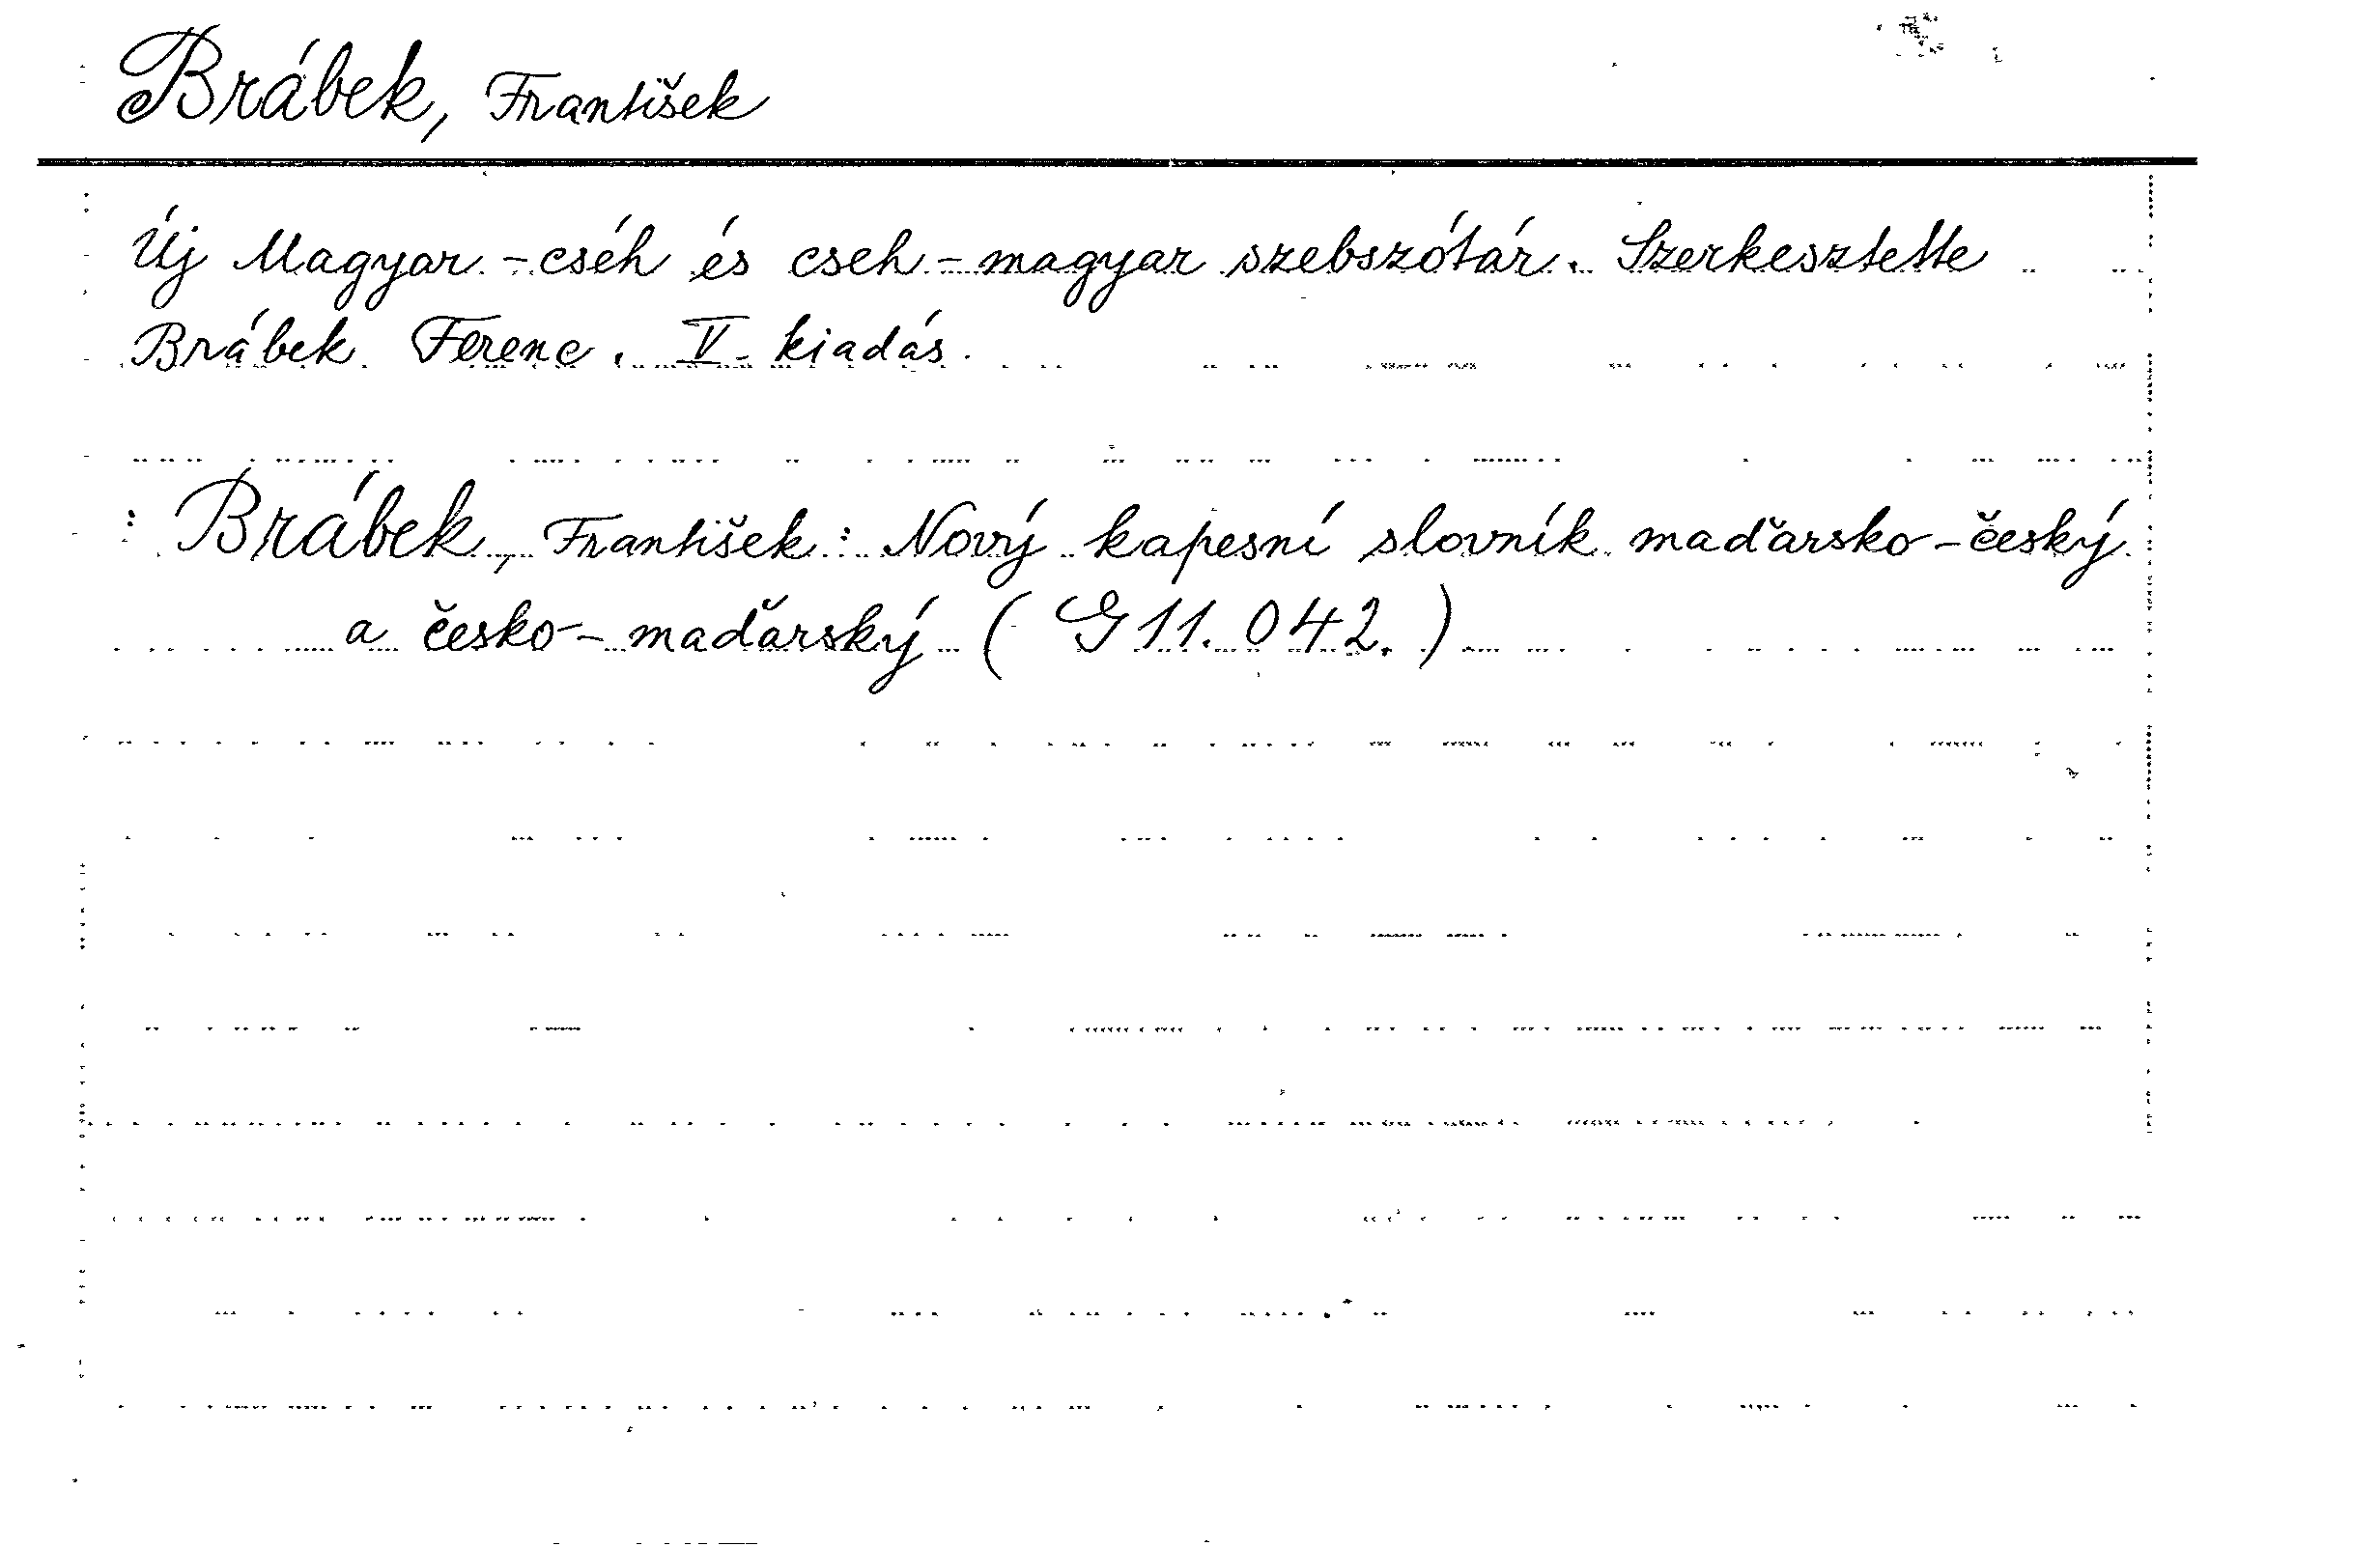 Brábek, František
Új Magyar-cséh és cseh-magyar szebszótár. Szerkesztette
Brábek Ferenc. V. kiadás.
: Brábek, František: Nový kapesní slovník maďarsko-český
a česko-maďarský (G 11.042.)